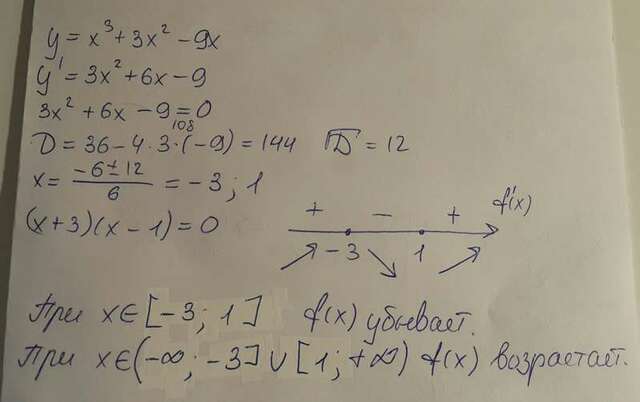 y = x³ + 3x² - 9x
y' = 3x² + 6x - 9
3x² + 6x - 9 = 0
108
D = 36 - 4·3·(-9) = 144 √D = 12
x = (-6 ± 12)/6 = -3; 1
(x+3)(x-1) = 0
+ - + f'(x)
-3 1
При x∈[-3; 1] f(x) убывает.
При x∈(-∞; -3]∪[1; +∞) f(x) возрастает.